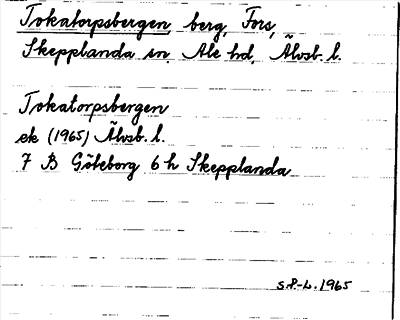 Tokatorpsbergen, berg, Fors,
Skepplanda sn, Ale hd, Älvsb. l.
Tokatorpsbergen
ek (1965) Älvsb. l.
7 B Göteborg 6 h Skepplanda
S.P-L. 1965